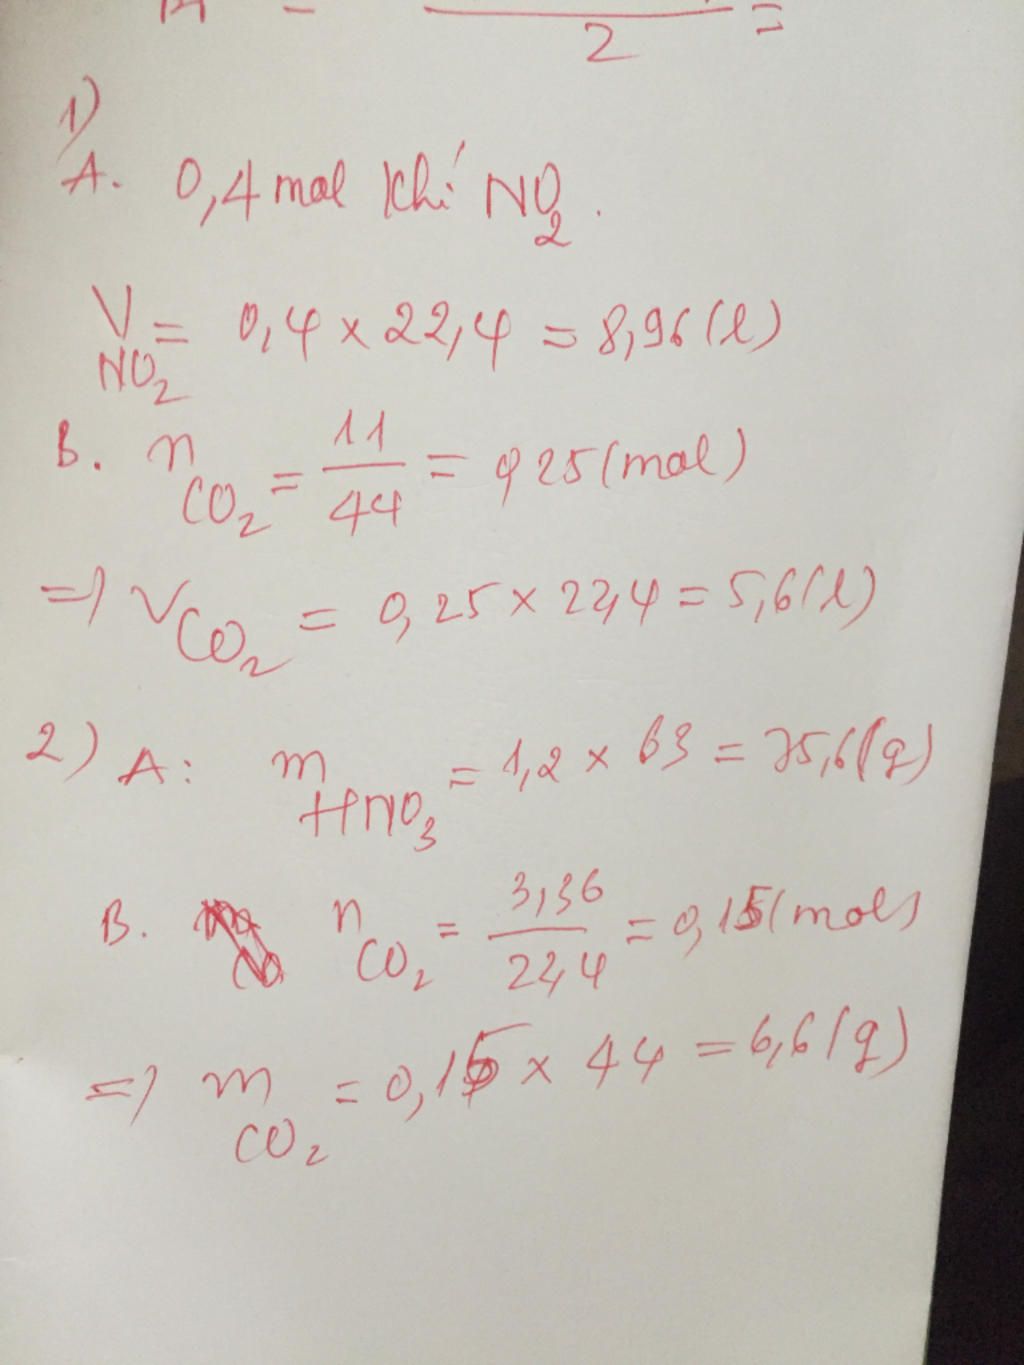 2 =
1)
A. 0,4 mol khí NO2.
V NO2 = 0,4 x 22,4 = 8,96 (l)
B. n CO2 = 11/44 = 0,25 (mol)
=) V CO2 = 0,25 x 22,4 = 5,6 (l)
2) A: m HNO3 = 1,2 x 63 = 75,6 (g)
B. n CO2 = 3,36/22,4 = 0,15 (mol)
=) m CO2 = 0,15 x 44 = 6,6 (g)